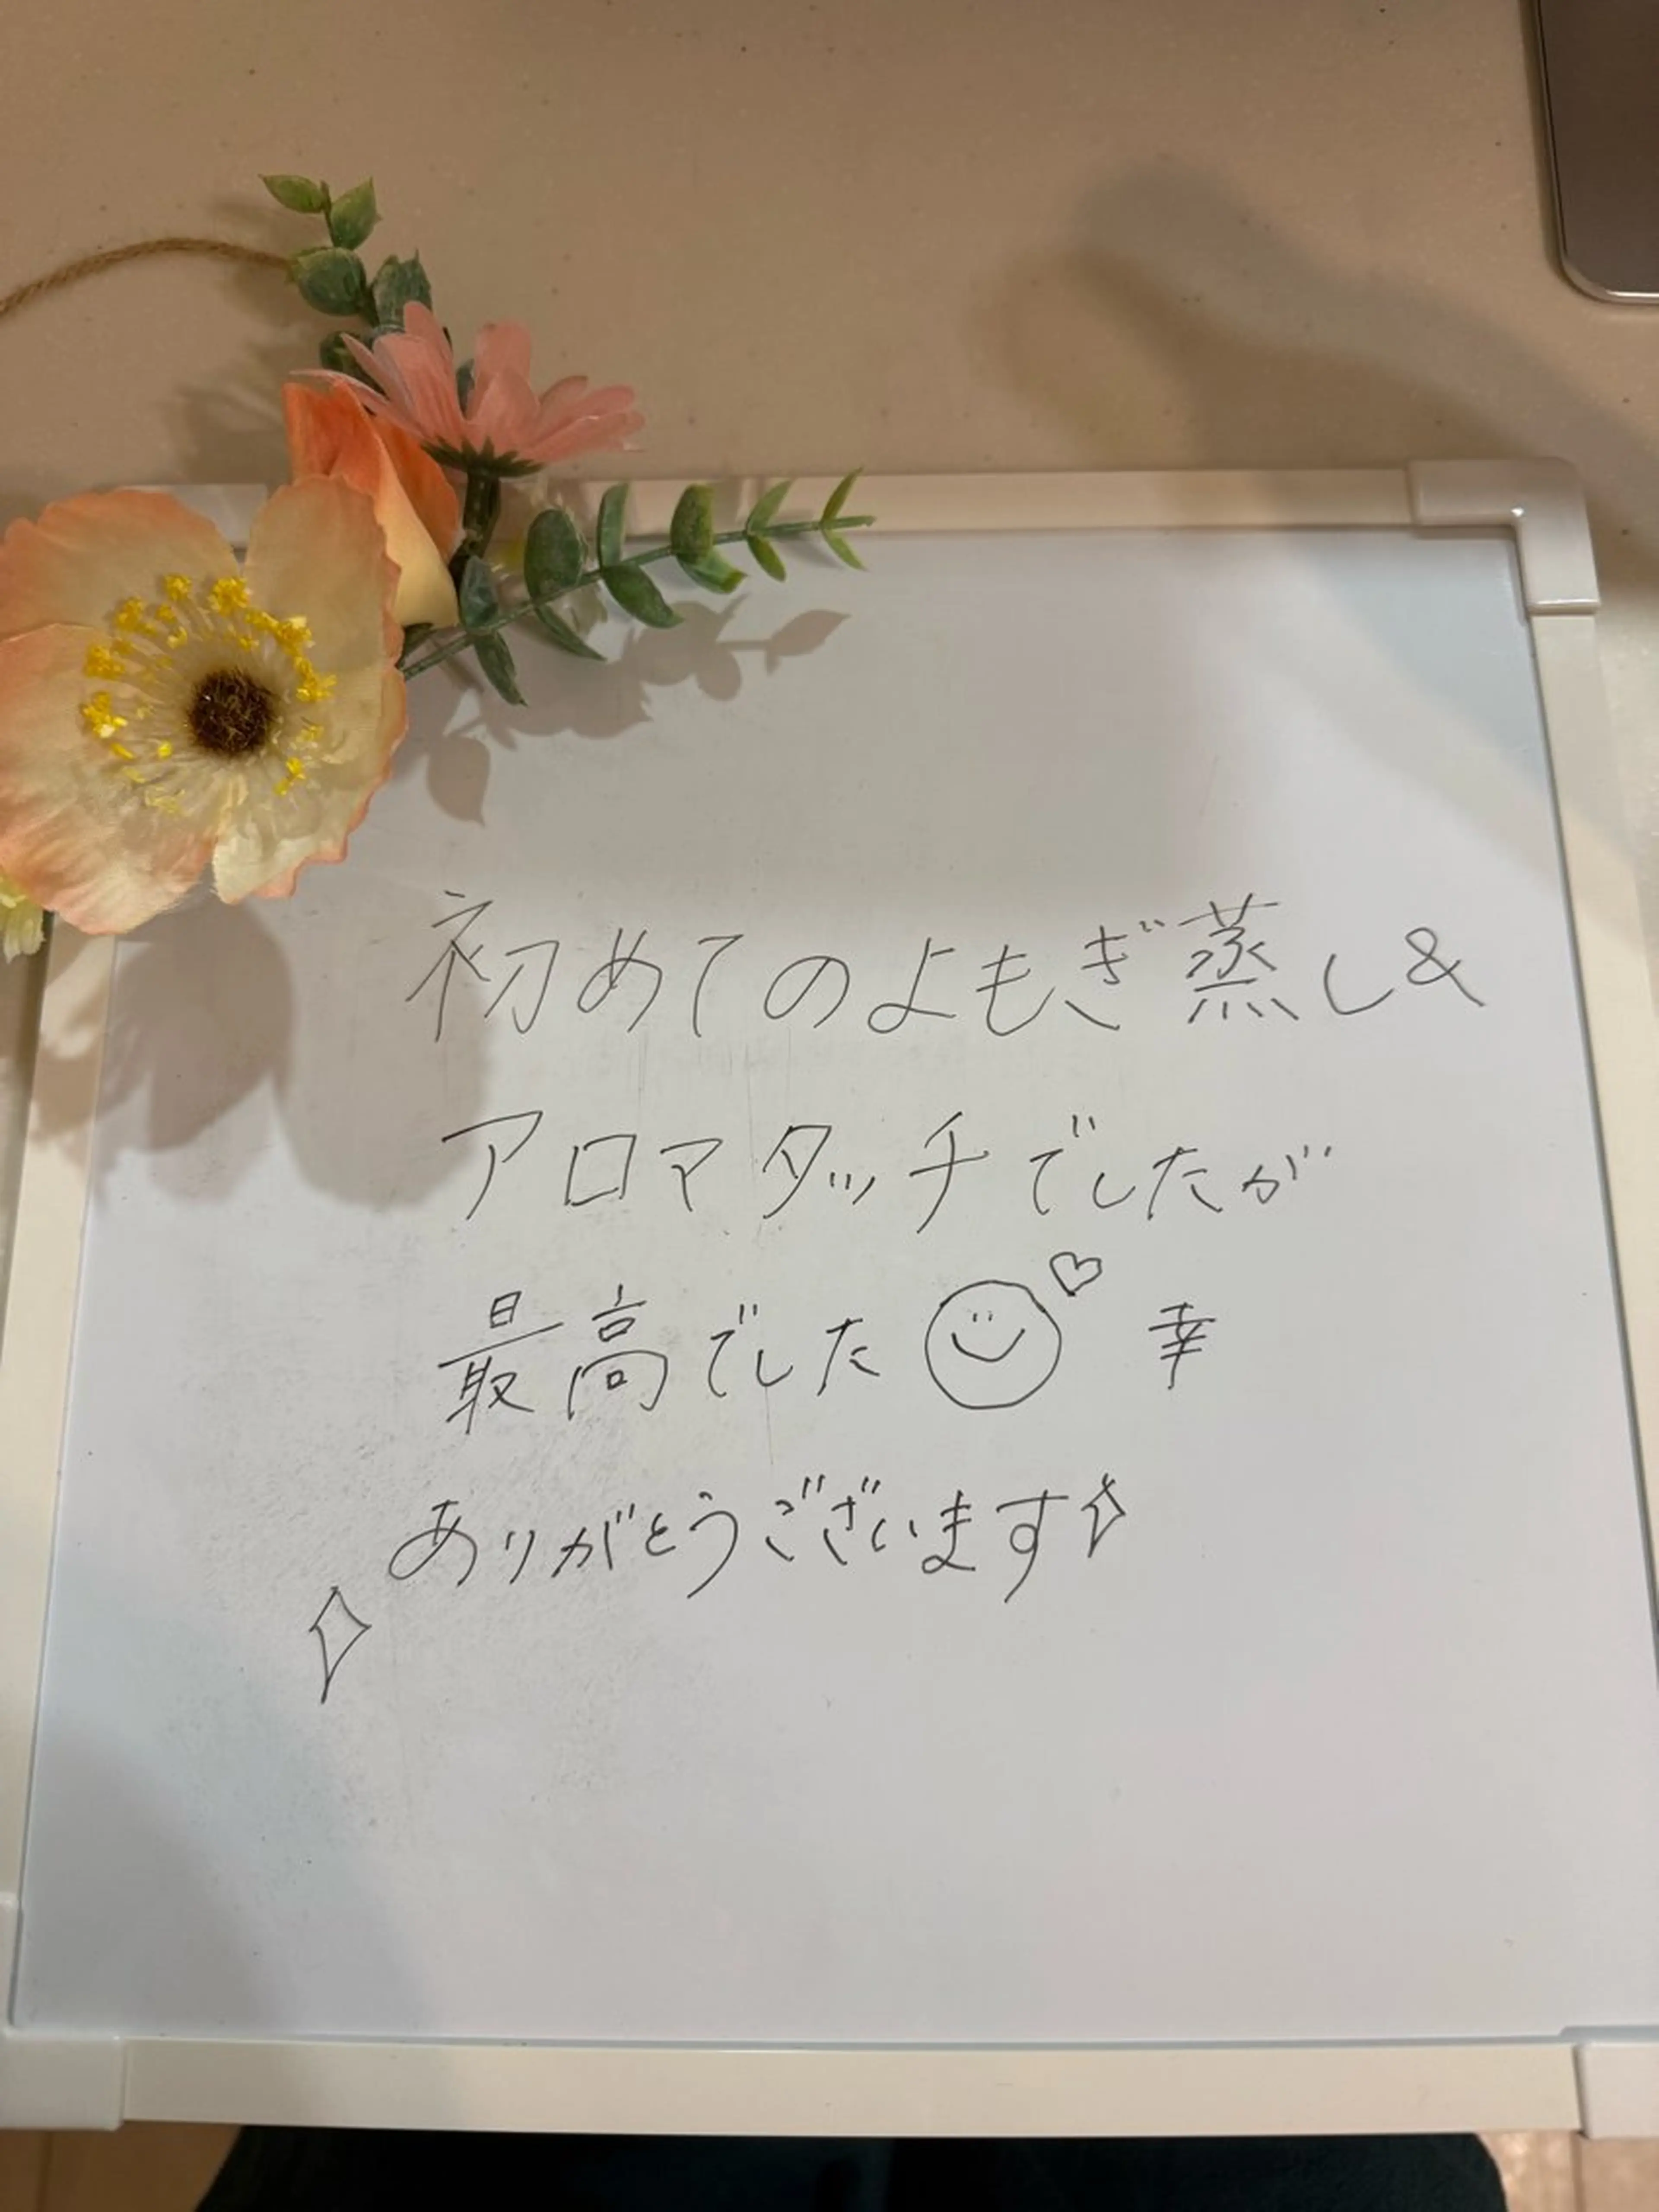 初めてのよもぎ蒸し&
アロマタッチでしたが
最高でした 幸
ありがとうございます